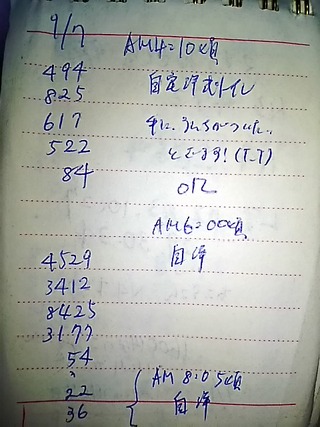 9/7
AM4=10頃
494
825 自宅洋式トイレ
617 手に、うんちがついた、、
522 とてます!(T-T)
84
OR
AM6=00頃
4529 自洋
3412
8425
3177
54
22 AM 8:05頃
36 自洋